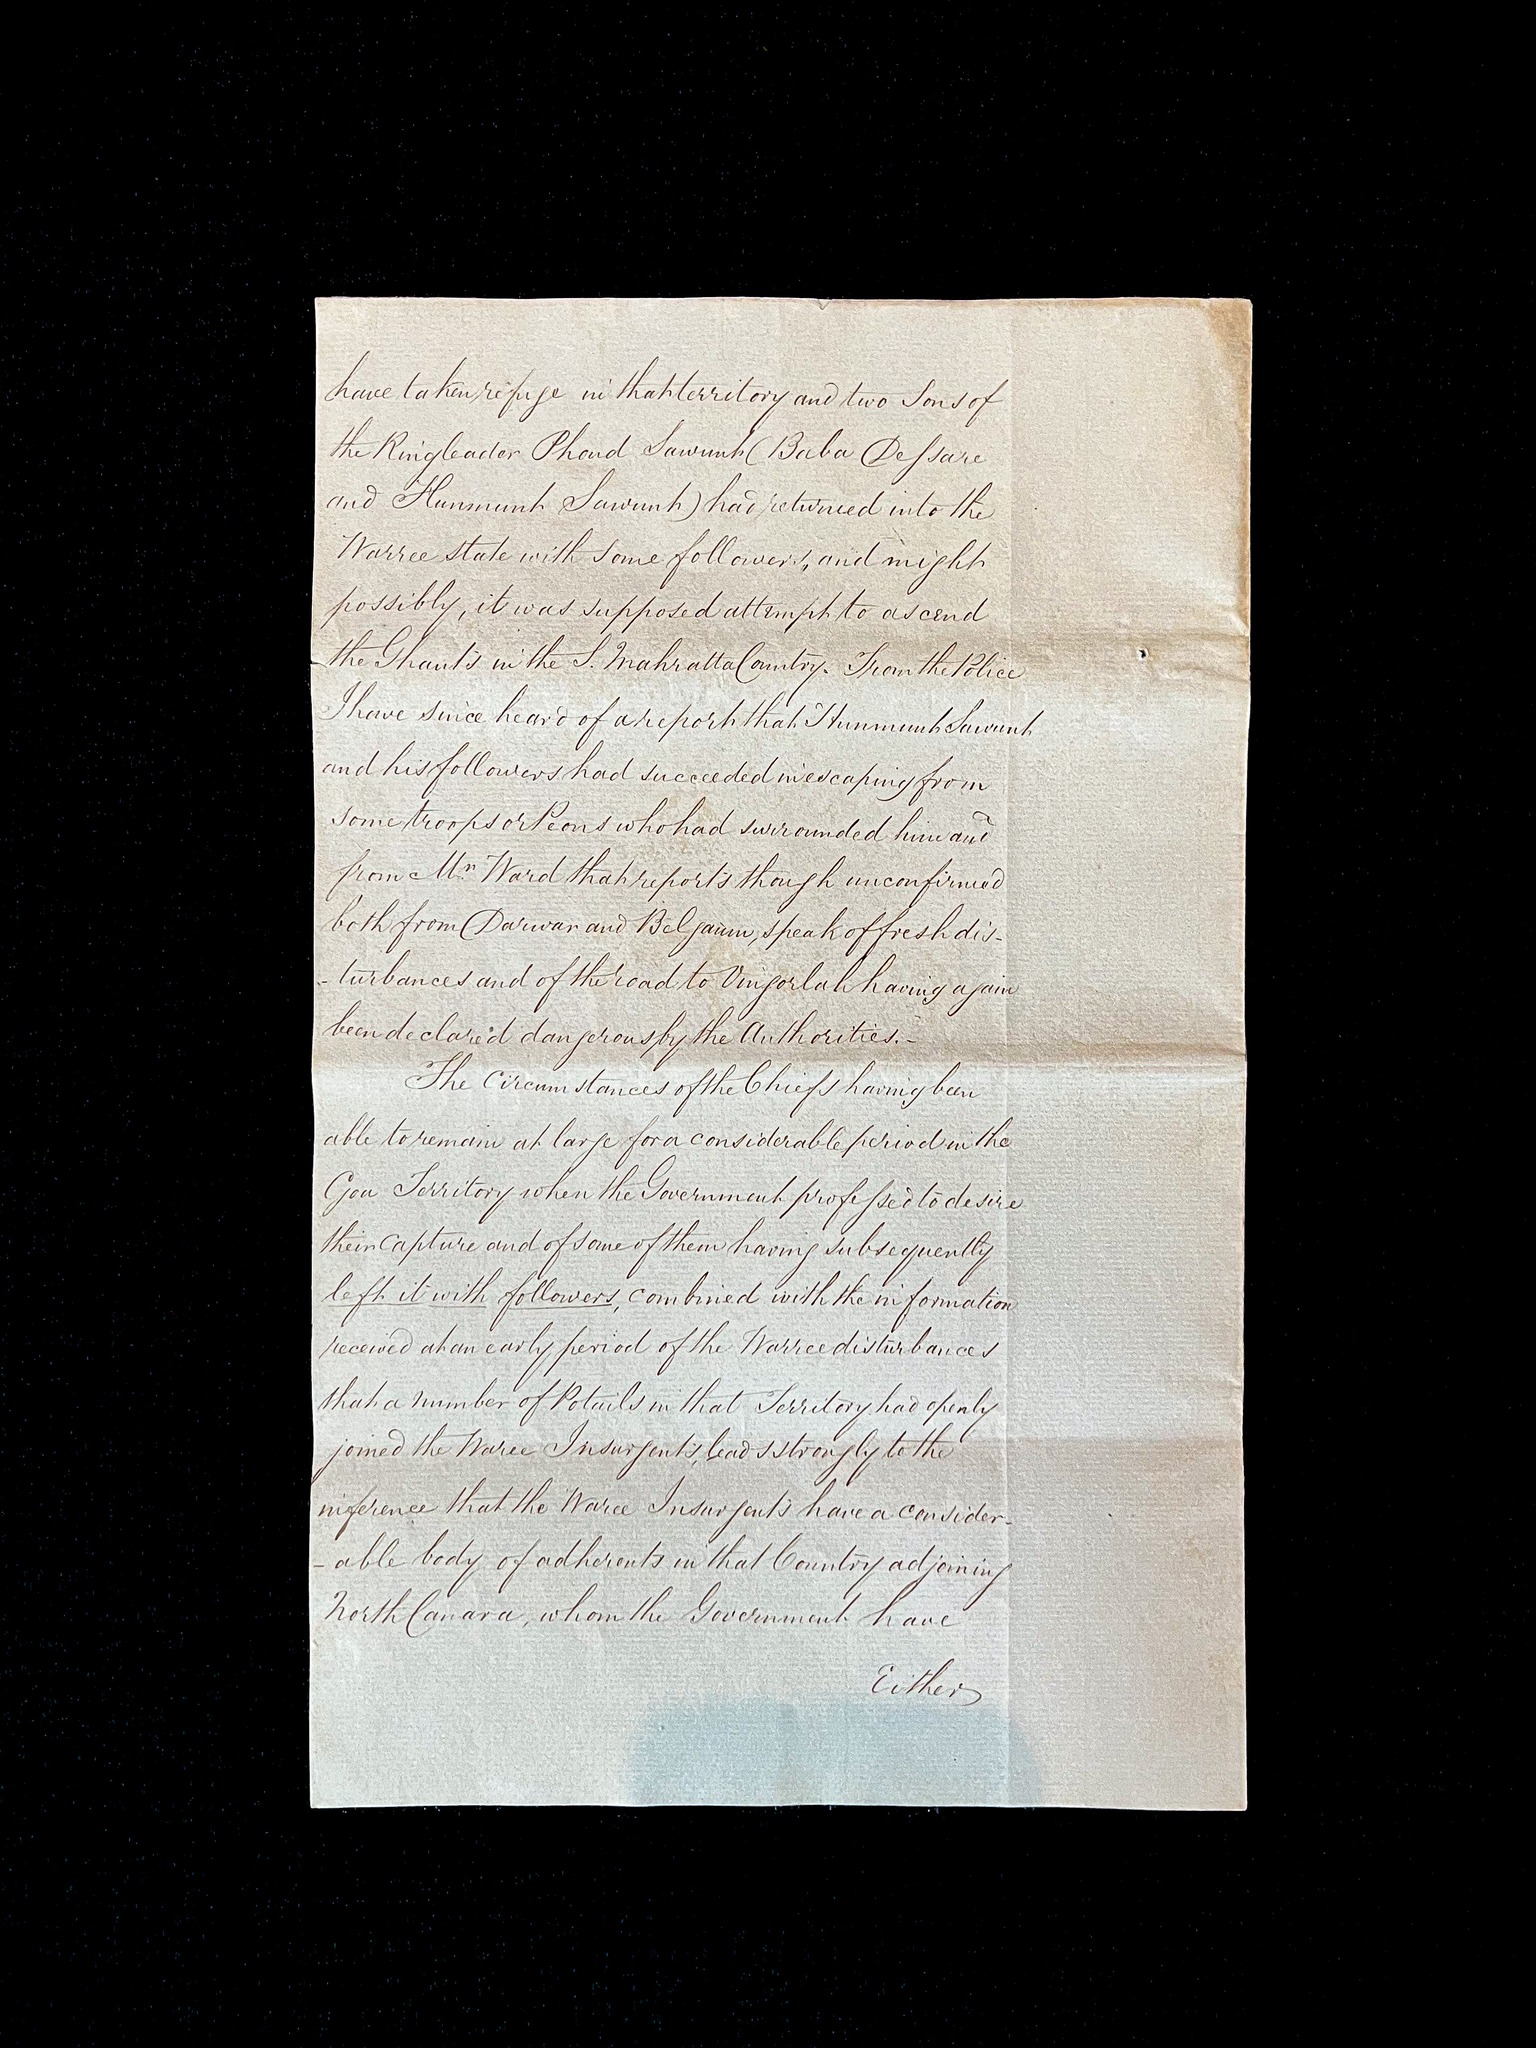 have taken refuge in that territory and two Sons of
the Ringleader Phond Sawunt (Baba Dessaie
and Hunmunt Sawunt) had returned into the
Warree state with some followers, and might
possibly, it was supposed attempt to ascend
the Ghauts in the S. Mahratta Country. From the Police
I have since heard of a report that Hunmunt Sawunt
and his followers had succeeded in escaping from
some troops or Peons who had surrounded him and
from Mr. Ward that reports though unconfirmed
both from Darwar and Belgaum, speak of fresh dis-
-turbances and of the road to Vingorlah having again
been declared dangerous by the Authorities.-
The Circumstances of the Chiefs having been
able to remain at large for a considerable period in the
Goa Territory when the Government professed to desire
their capture and of some of them having subsequently
left it with followers, combined with the information
received at an early period of the Warree disturbances
that a number of Potails in that Territory had openly
joined the Waree Insurgents, leads strongly to the
inference that the Waree Insurgents have a consider-
-able body of adherents in that Country adjoining
North Canara, whom the Government have
Either